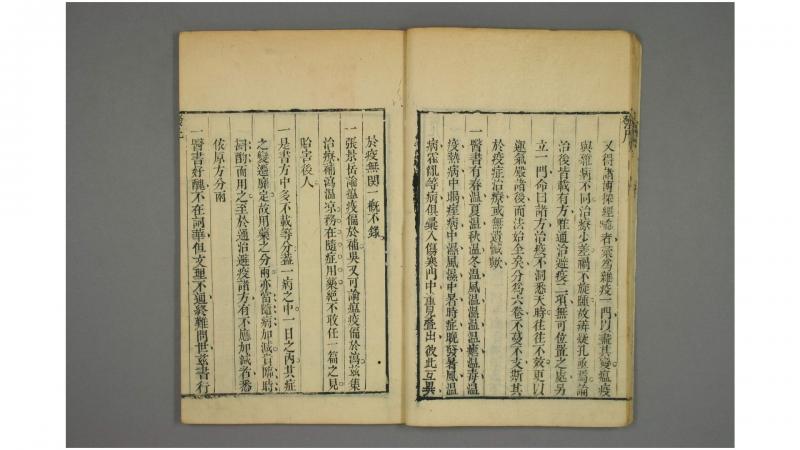 又得諸博採經驗者彙爲雜疫一門以盡其變瘟疫
與雜病不同治療少差禍不旋踵故辨疑孔亟焉論
治後皆載有方贮通治避疫二項無可位置之處另
立一門命曰諸方治疫不洞悉天時往往不效更以
運氣殿諸後而法始全矣分爲六卷不蔓不支斯其
於疫症治療或無遺憾歟
一醫書有春温夏温秋温冬温風温濕温温瘧温毒温
疫熱病中暍痙病中濕風濕中暑時症晚發暑風温
病霍亂等病俱彙入傷寒門中重見疊出彼此互異
於疫無関一概不錄
一張景岳論瘟疫偏於補吳又可論瘟疫偏於瀉兹集
治療補瀉温凉務在隨症用藥絕不敢任一篇之見
貽害後人
一是書方中多不載等分蓋一病之中一日之内其症
之變遷靡定故用藥之分兩亦當隨病加減貴臨時
斟酌而用之至於通治避疫諸方有不應加減者悉
依原方分兩
一醫書好醜不在詞華但文理不通終難問世兹書行